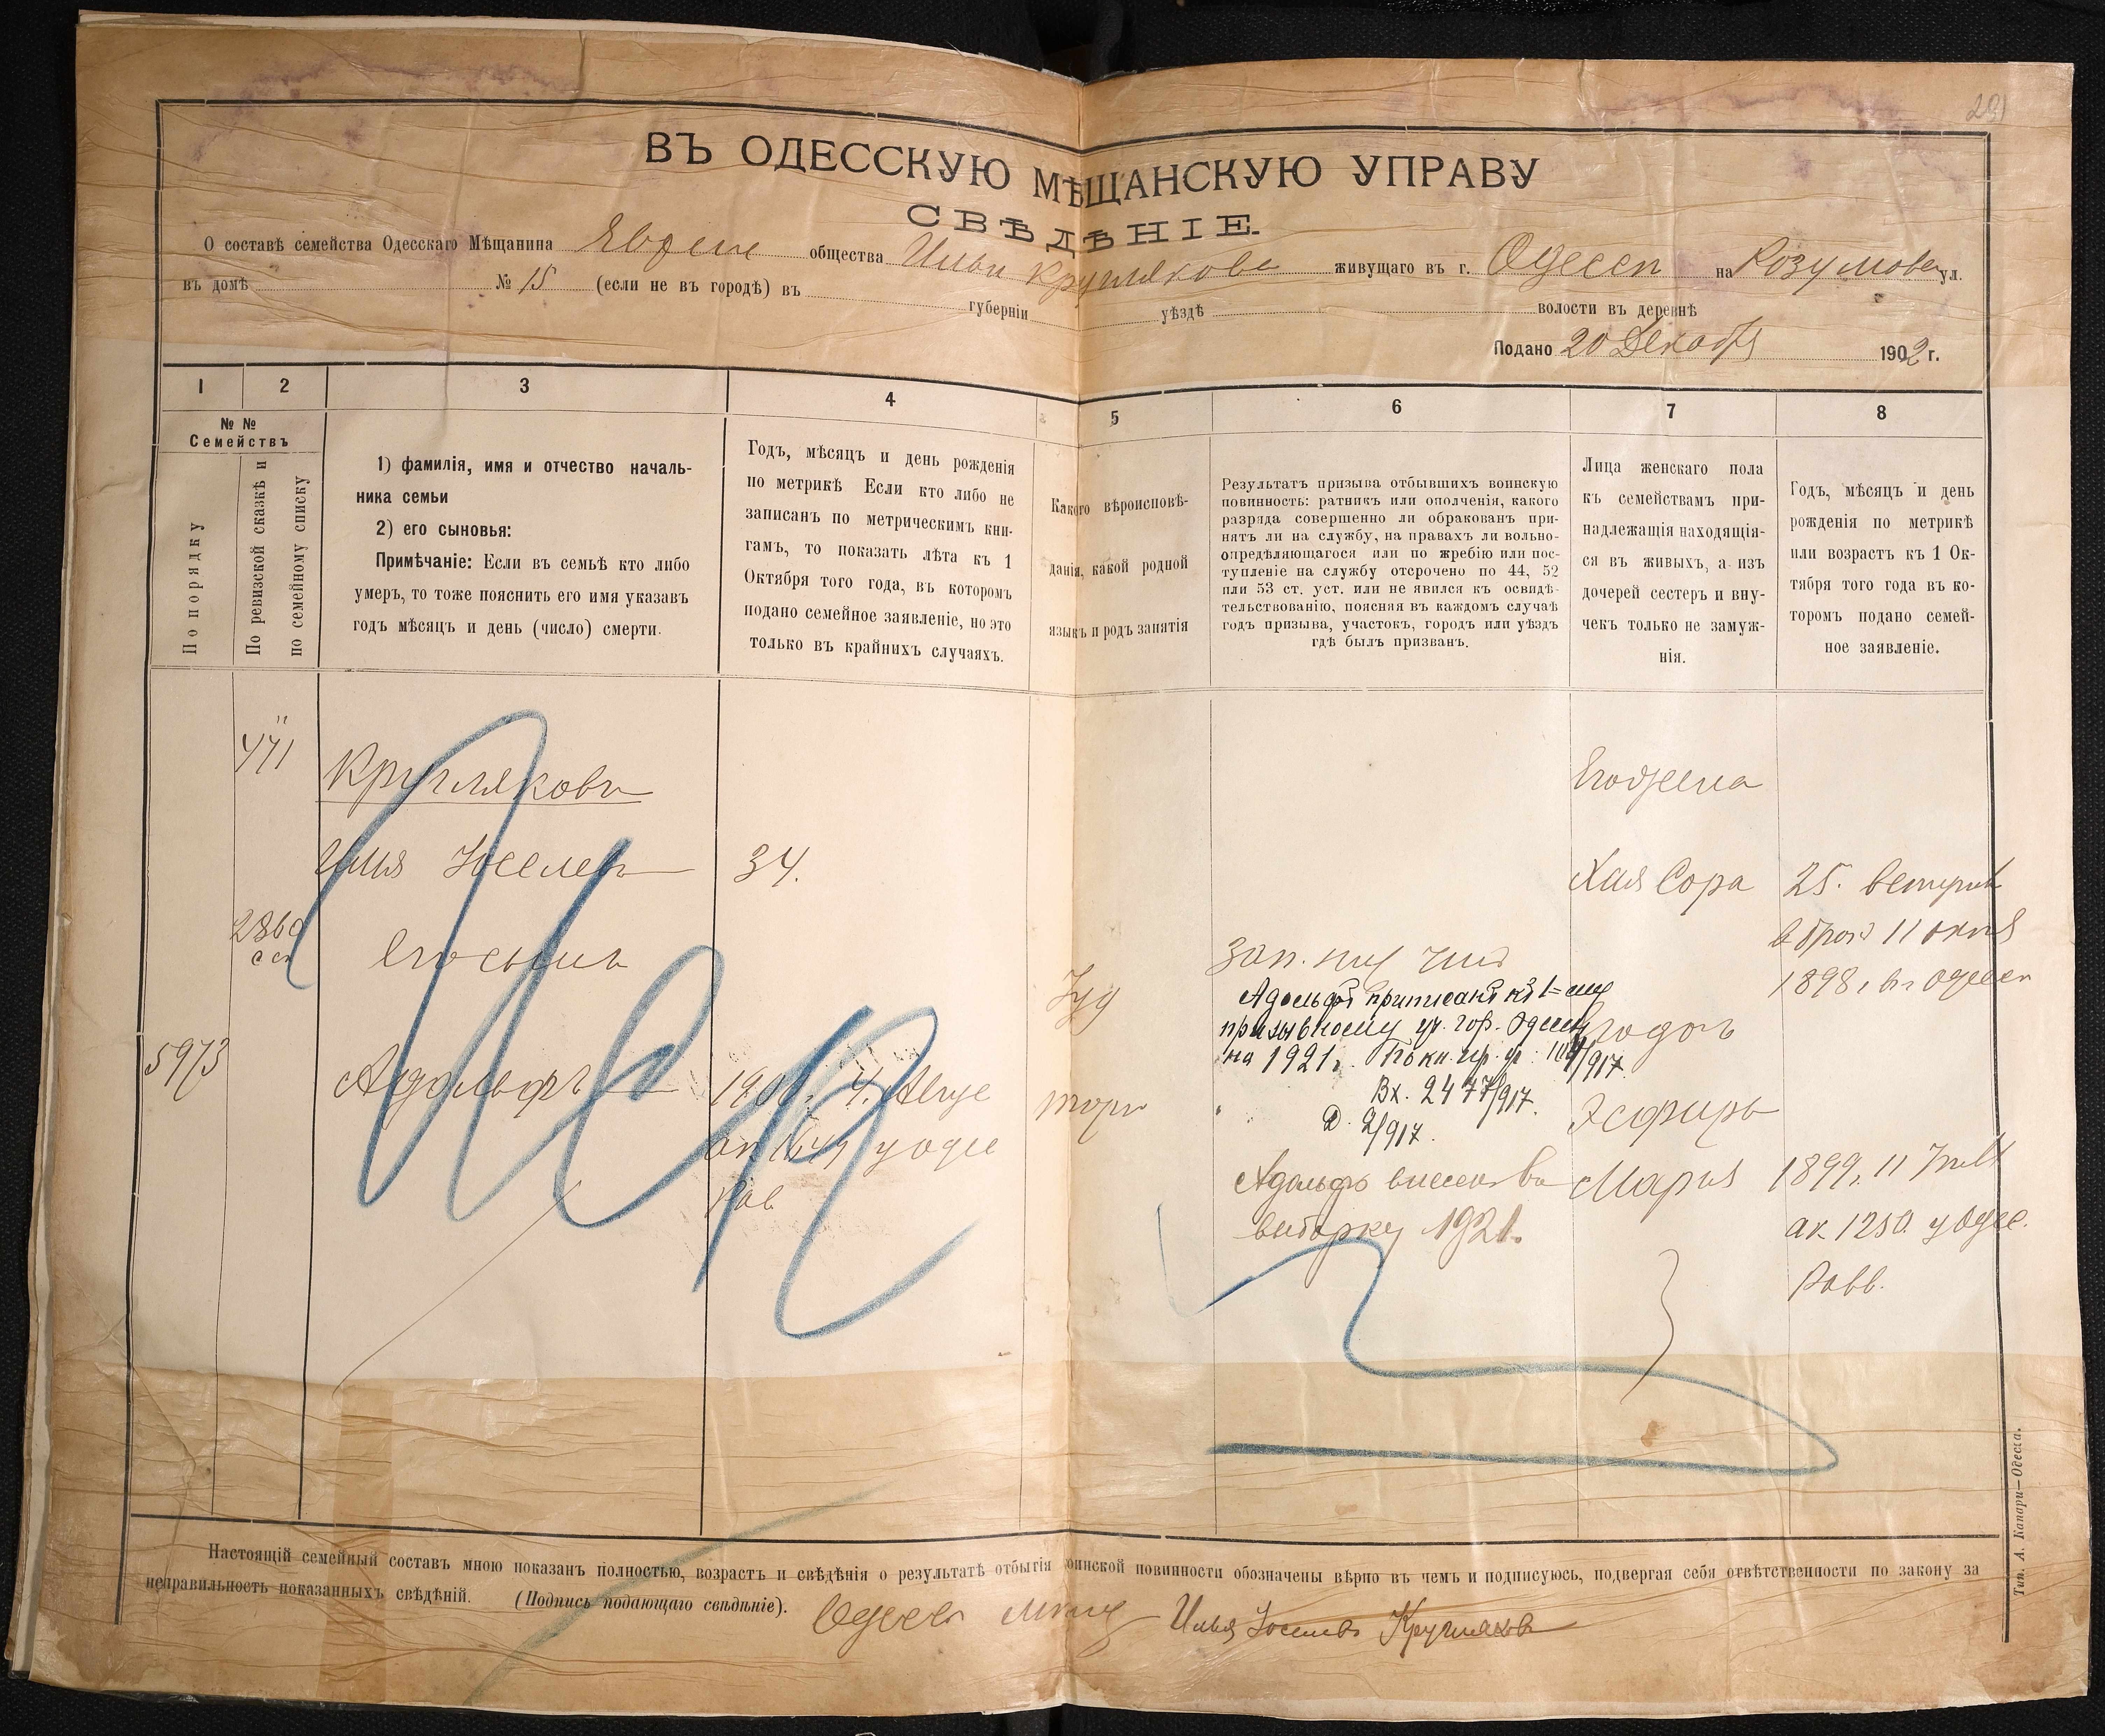 291
ВЪ ОДЕССКУЮ МѢЩАНСКУЮ УПРАВУ
СВѢДѢНІЕ.
О составѣ семейства Одесскаго Мѣщанина Евреи общества Ильи Круглякова живущаго въ г. Одессѣ на Розумова ул.
въ домѣ № 15 (если не въ городѣ) въ губерніи уѣздѣ волости въ деревнѣ
Подано 20 Декабря 1902 г.
1 2 3 4 5 6 7 8
№ №
Семействъ
По порядку
По ревизской сказкѣ и
по семейному списку
1) фамилія, имя и отчество началь-
ника семьи
2) его сыновья:
Примѣчаніе: Если въ семьѣ кто либо
умеръ, то тоже пояснить его имя указавъ
годъ мѣсяцъ и день (число) смерти.
Годъ, мѣсяцъ и день рожденія
по метрикѣ Если кто либо не
записанъ по метрическимъ кни-
гамъ, то показать лѣта къ 1
Октября того года, въ которомъ
подано семейное заявленіе, но это
только въ крайнихъ случаяхъ.
Какого вѣроисповѣ-
данія, какой родной
языкъ и родъ занятія
Результатъ призыва отбывшихъ воинскую
повинность: ратникъ или ополченія, какого
разряда совершенно ли обракованъ при-
нятъ ли на службу, на правахъ ли вольно-
опредѣляющагося или по жребію или пос-
тупленіе на службу отсрочено по 44, 52
или 53 ст. уст. или не явился къ освидѣ-
тельствованію, поясняя въ каждомъ случаѣ
годъ призыва, участокъ, городъ или уѣздъ
гдѣ былъ призванъ.
Лица женскаго пола
къ семействамъ при-
надлежащія находящія-
ся въ живыхъ, а изъ
дочерей сестеръ и вну-
чекъ только не замуж-
нія.
Годъ, мѣсяцъ и день
рожденія по метрикѣ
или возрастъ къ 1 Ок-
тября того года въ ко-
торомъ подано семей-
ное заявленіе.
471
Кругляковъ
Илья Іоселевъ 34.
Его сынъ
5973
Адольфъ
Іуд
торг
Адольфъ приписанъ къ 1-му
призывному уч. гор. Одессы
на 1921 г.
Вх. 2477/917.
Д. 2/917.
Адольфъ внесенъ въ
выборку 1921.
Его жена
Хая Сора 25.
1898 г. въ Одессѣ
Его доч
Эсфирь
Марія 1899 г. 11
ак 1250 у Одес.
Равв.
Настоящій семейный составъ мною показанъ полностью, возрастъ и свѣдѣнія о результатѣ отбытія воинской повинности обозначены вѣрно въ чемъ и подписуюсь, подвергая себя отвѣтственности по закону за
неправильность показанныхъ свѣдѣній. (Подпись подающаго свѣдѣніе).
Илья Іоселевъ Кругляковъ
Тип. А. Капари—Одесса.